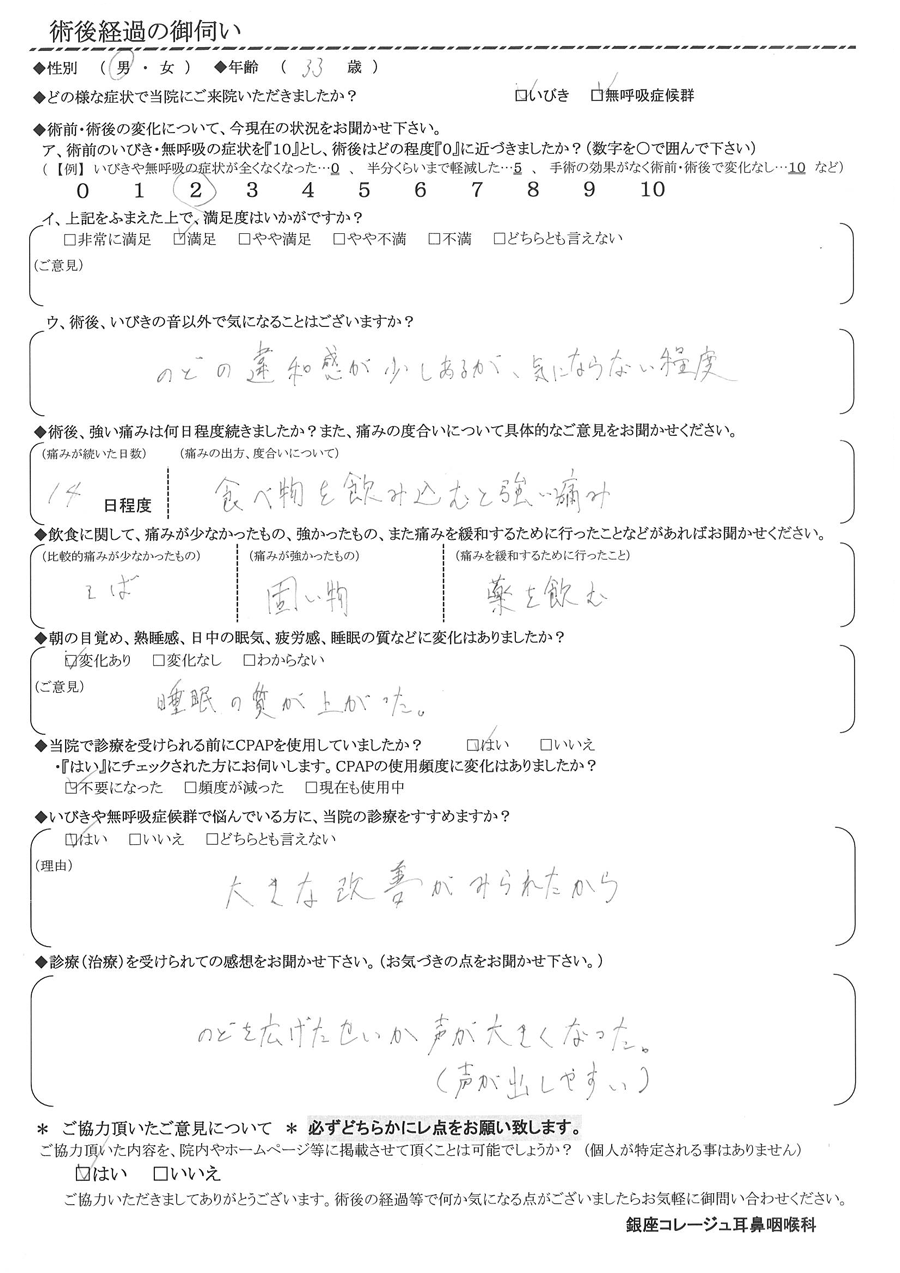 術後経過の御伺い
◆性別 ( 男 ・ 女 ) ◆年齢 ( 33 歳 )
◆どの様な症状で当院にご来院いただきましたか? ☑いびき ☑無呼吸症候群
◆術前・術後の変化について、今現在の状況をお聞かせ下さい。
ア、術前のいびき・無呼吸の症状を『10』とし、術後はどの程度『0』に近づきましたか?(数字を〇で囲んで下さい)
(【例】 いびきや無呼吸の症状が全くなくなった…0 、 半分くらいまで軽減した…5 、 手術の効果がなく術前・術後で変化なし…10 など)
0 1 2 3 4 5 6 7 8 9 10
イ、上記をふまえた上で、満足度はいかがですか?
□非常に満足 ☑満足 □やや満足 □やや不満 □不満 □どちらとも言えない
(ご意見)
ウ、術後、いびきの音以外で気になることはございますか?
のどの違和感が少しあるが、気にならない程度
◆術後、強い痛みは何日程度続きましたか?また、痛みの度合いについて具体的なご意見をお聞かせください。
(痛みが続いた日数) (痛みの出方、度合いについて)
14 日程度 食べ物を飲み込むと強い痛み
◆飲食に関して、痛みが少なかったもの、強かったもの、また痛みを緩和するために行ったことなどがあればお聞かせください。
(比較的痛みが少なかったもの) (痛みが強かったもの) (痛みを緩和するために行ったこと)
そば 固い物 薬を飲む
◆朝の目覚め、熟睡感、日中の眠気、疲労感、睡眠の質などに変化はありましたか?
☑変化あり □変化なし □わからない
(ご意見)
睡眠の質が上がった。
◆当院で診療を受けられる前にCPAPを使用していましたか? ☑はい □いいえ
・『はい』にチェックされた方にお伺いします。CPAPの使用頻度に変化はありましたか?
☑不要になった □頻度が減った □現在も使用中
◆いびきや無呼吸症候群で悩んでいる方に、当院の診療をすすめますか?
☑はい □いいえ □どちらとも言えない
(理由)
大きな改善がみられたから
◆診療(治療)を受けられての感想をお聞かせ下さい。(お気づきの点をお聞かせ下さい。)
のどを広げたせいか声が大きくなった。
(声が出しやすい)
＊ ご協力頂いたご意見について ＊ 必ずどちらかにレ点をお願い致します。
ご協力頂いた内容を、院内やホームページ等に掲載させて頂くことは可能でしょうか? (個人が特定される事はありません)
☑はい □いいえ
ご協力いただきましてありがとうございます。術後の経過等で何か気になる点がございましたらお気軽に御問い合わせください。
銀座コレージュ耳鼻咽喉科